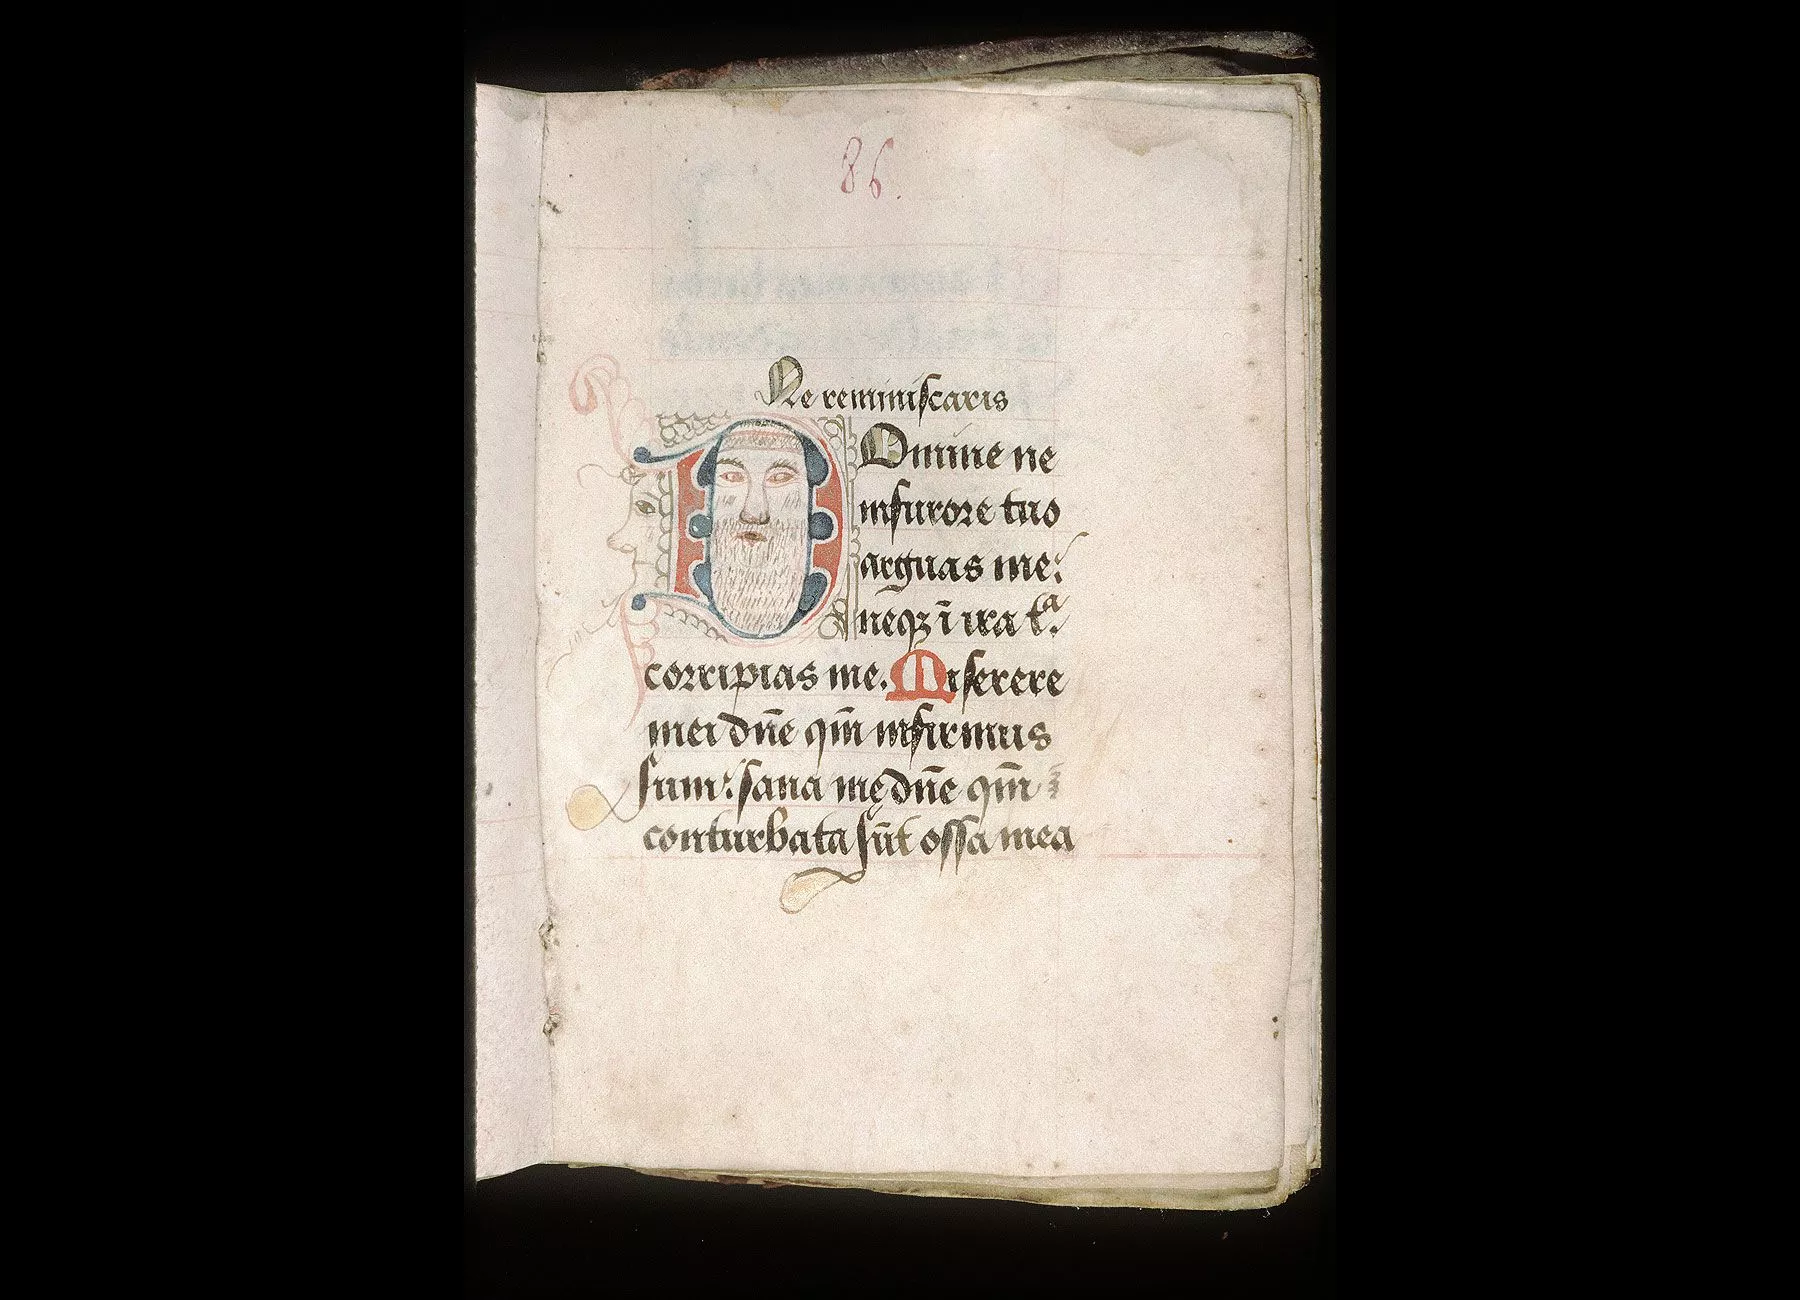 86.
Ne reminiscaris
Domine ne
in furore tuo
arguas me:
neqꝫ ī ira tᵃ.
corripias me. Miserere
mei dn̄e qm̄ infirmus
sum: sana me dn̄e qm̄
conturbata sūt ossa mea